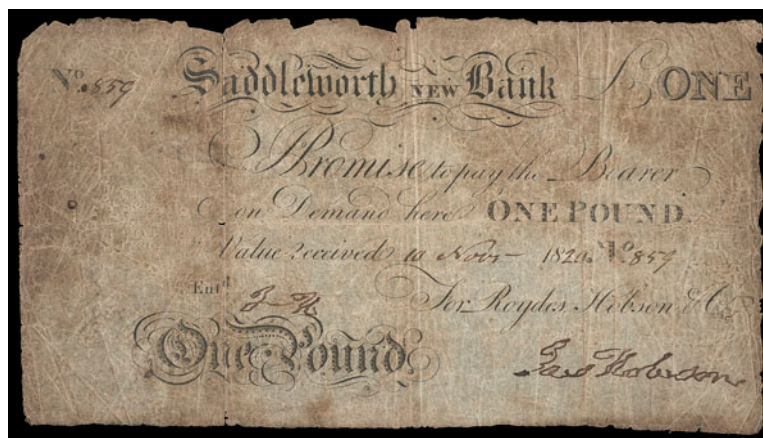 No. 859 Saddleworth NEW Bank £ ONE
I Promise to pay the Bearer
on Demand here ONE POUND.
Value received 10 Novr 1820. No 859
Entd J H For Roydes, Hobson & Co
One Pound Jas Hobson